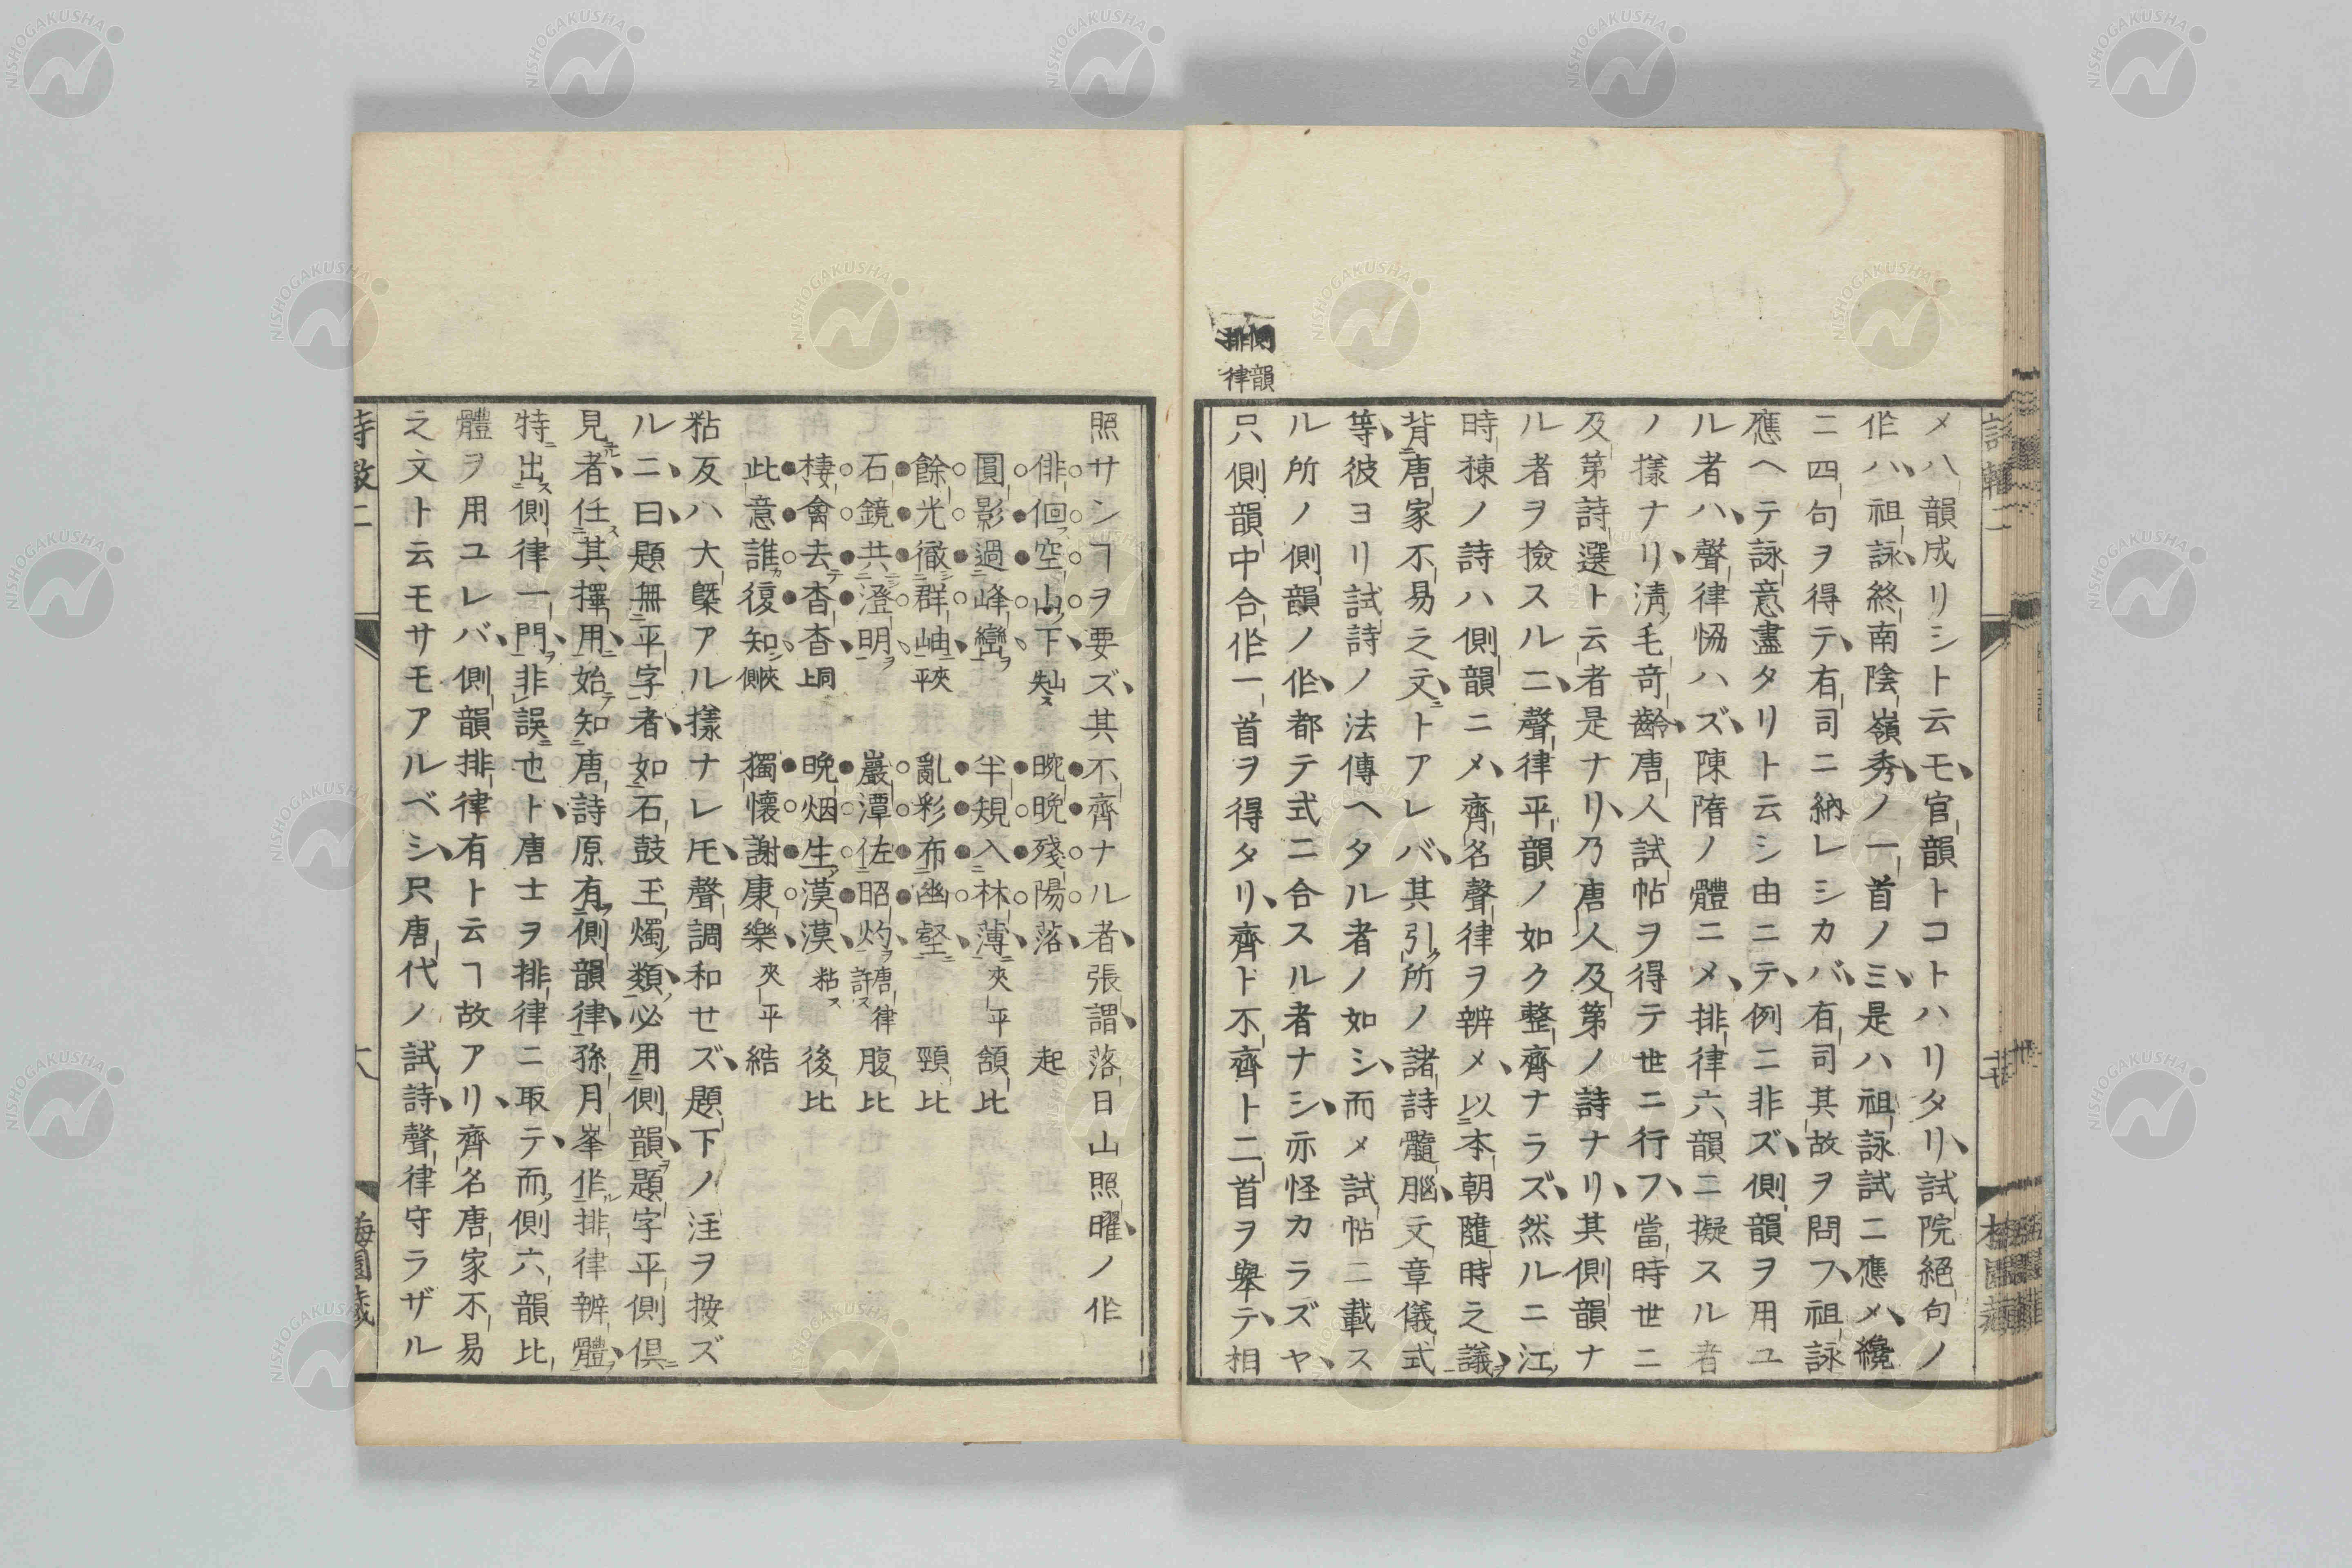 側韻
排律
メ八韻成リシト云モ官韻トコトハリタリ試院絕句ノ
作ハ祖詠終南陰嶺秀ノ一首ノミ是ハ祖詠試ニ應メ纔
ニ四句ヲ得テ有司ニ納レシカバ有司其故ヲ問フ祖詠
應ヘテ詠意盡タリト云シ由ニテ例ニ非ズ側韻ヲ用ユ
ル者ハ聲律恊ハズ陳隋ノ體ニメ排律六韻ニ擬スル者
ノ樣ナリ淸毛奇齡唐人試帖ヲ得テ世ニ行フ當時世ニ
及第詩選ト云者是ナリ乃唐人及第ノ詩ナリ其側韻ナ
ル者ヲ撿スルニ聲律平韻ノ如ク整齊ナラズ然ルニ江
時棟ノ詩ハ側韻ニメ齊名聲律ヲ辨メ以本朝隨時之議
背唐家不易之文トアレバ其引所ノ諸詩髓腦文章儀式
等彼ヨリ試詩ノ法傳ヘタル者ノ如シ而メ試帖ニ載ス
ル所ノ側韻ノ作都テ式ニ合スル者ナシ亦怪カラズヤ
只側韻中合作一首ヲ得タリ齊ト不齊ト二首ヲ舉テ相
照サシヿヲ要ズ其不齊ナル者張謂落日山照曜ノ作
徘徊空山下 晼晚殘陽落 起
圓影過峰巒 半規入林薄 夾平 頷比
餘光徹群岫 夾平 亂彩布幽壑 頸比
石鏡共澄明 巖潭佐昭灼 唐律許ス 腹比
棲禽去杳杳 同上 晚烟生漠漠 粘ス 後比
此意誰復知 夾側 獨懷謝康樂 夾平 結
粘反ハ大槩アル樣ナレ𪜈聲調和セズ題下ノ注ヲ按ズ
ルニ曰題無平字者如石鼓王燭類必用側韻題字平側俱
見者任其擇用始知唐詩原有側韻律孫月峯作排律辨體
特出側律一門非誤也ト唐士ヲ排律ニ取テ而側六韻比
體ヲ用ユレバ側韻排律有ト云ヿ故アリ齊名唐家不易
之文ト云モサモアルベシ只唐代ノ試詩聲律守ラザル